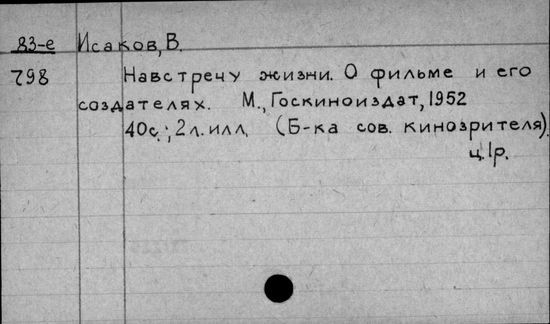 83-е Исаков, В.
798 Навстречу жизни. О фильме и его
создателях. М., Госкиноиздат, 1952
40с.; 2л. илл. (Б-ка сов. кинозрителя).
ц. 1р.